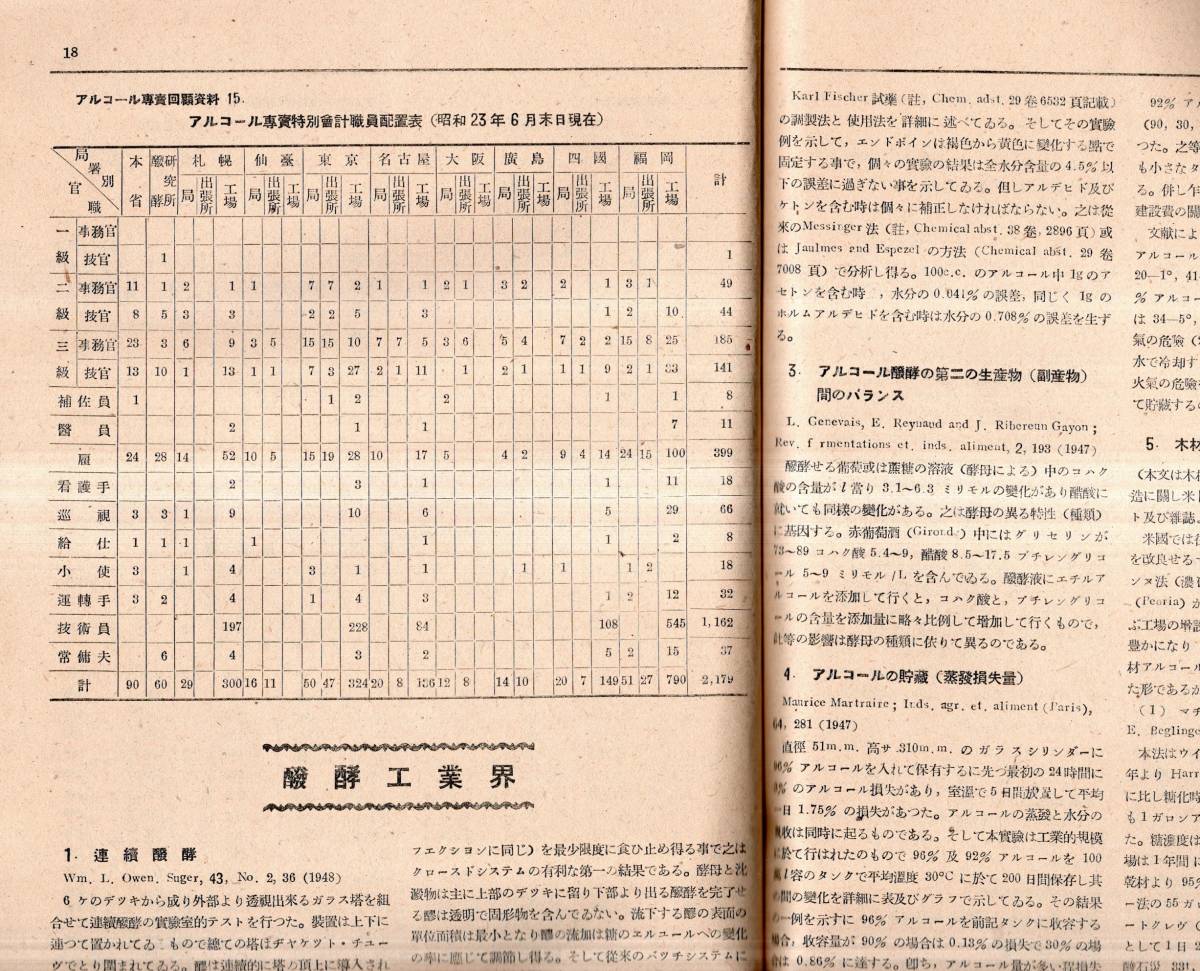 18
アルコール専賣回顧資料 15.
アルコール専賣特別會計職員配置表（昭和23年6月末日現在）
局署別 官職 本省 醱酵研究所 札幌 仙臺 東京 名古屋 大阪 廣島 四國 福岡 計
局 出張所 工場 局 出張所 工場 局 出張所 工場 局 出張所 工場 局 出張所 工場 局 出張所 工場 局 出張所 工場 局 出張所 工場
一級 事務官
技官 1 1
二級 事務官 11 1 2 1 1 7 7 2 1 1 2 1 3 2 2 1 3 1 49
技官 8 5 3 3 2 2 5 3 1 2 10 44
三級 事務官 23 3 6 9 3 5 15 15 10 7 7 5 3 6 5 4 7 2 2 15 8 25 185
技官 13 10 1 13 1 1 7 3 27 2 1 11 1 2 1 1 1 9 2 1 33 141
補佐員 1 1 2 2 1 1 8
醫員 2 1 1 7 11
雇 24 28 14 52 10 5 15 19 28 10 17 5 4 2 9 4 14 24 15 100 399
看護手 2 3 1 1 11 18
巡視 3 3 1 9 10 6 5 29 66
給仕 1 1 1 1 1 1 2 8
小使 3 1 4 3 1 1 1 1 1 2 18
運轉手 3 2 4 1 4 3 1 2 12 32
技術員 197 228 84 108 545 1,162
常傭夫 6 4 3 2 5 2 15 37
計 90 60 29 300 16 11 50 47 324 20 8 136 12 8 14 10 20 7 149 51 27 790 2,179
醱酵工業界
1. 連續醱酵
Wm. L. Owen. Suger, 43, No. 2, 36 (1948)
6ヶのデツキから成り外部より透視出來るガラス塔を組
合せて連續醱酵の實驗室的テストを行つた。裝置は上下に
連つて置かれてゐ もので總ての塔はヂヤケツト・チユー
ヴでとり圍まれてゐる。醪は連續的に塔の頂上に導入され
フエクシヨンに同じ）を最少限度に食ひ止め得る事で之は
クロースドシステムの有利な第一の結果である。酵母と沈
澱物は主に上部のデツキに留り下部より出る醱酵を完了せ
る醪は透明で固形物を含んでゐない。流下する醪の表面の
單位面積は最小となり醪の流加は糖のエルユールへの變化
の率に應じて調節し得る。そして從來のバツチシステムに
Karl Fischer試藥（註, Chem. adst. 29卷6532頁記載）
の調製法と使用法を詳細に述べてゐる。そしてその實驗
例を示して，エンドポインは褐色から黄色に變化する點で
固定する事で，個々の實驗の結果は全水分含量の4.5%以
下の誤差に過ぎない事を示してゐる。但しアルデヒド及び
ケトンを含む時は個々に補正しなければならない。之は從
來のMessinger法（註, Chemical abst. 38卷, 2896頁）或
は Jaulmes and Espezel の方法（Chemical abst. 29卷
7008頁）で分析し得る。100c.c. のアルコール中1gのア
セトンを含む時 , 水分の0.041%の誤差，同じく1gの
ホルムアルデヒドを含む時は水分の0.708%の誤差を生ず
る。
3. アルコール醱酵の第二の生産物（副産物）
間のバランス
L. Genevais, E. Reynaud and J. Ribereun Gayon ;
Rev. f rmentations et. inds. aliment, 2, 193 (1947)
醱酵せる葡萄或は蔗糖の溶液（酵母による）中のコハク
酸の含量がl當り3.1〜6.3ミリモルの變化があり醋酸に
就いても同樣の變化がある。之は酵母の異る特性（種類）
に基因する。赤葡萄酒（Girond）中にはグリセリンが
73〜89コハク酸5.4〜9, 醋酸8.5〜17.5ブチレングリコ
ール5〜9ミリモル/Lを含んでゐる。醱酵液にエチルア
ルコールを添加して行くと，コハク酸と，ブチレングリコ
ールの含量を添加量に略々比例して増加して行くもので，
此等の影響は酵母の種類に依りて異るのである。
4. アルコールの貯藏（蒸發損失量）
Maurice Martraire ; Inds. agr. et. aliment (Paris),
64, 281 (1947)
直徑51m.m. 高サ310m.m. のガラスシリンダーに
96% アルコールを入れて保有するに先づ最初の24時間に
% のアルコール損失があり，室溫で5日間放置して平均
一日1.75%の損失があつた。アルコールの蒸發と水分の
吸收は同時に起るものである。そして本實驗は工業的規模
に於て行はれたのもので96%及92%アルコールを100
l容のタンクで平均溫度30°Cに於て200日間保存し其
の間の變化を詳細に表及びグラフで示してゐる。その結果
の一例を示すに96%アルコールを前記タンクに收容する
場合，收容量が90%の場合は0.13%の損失で30%の場
合は0.86%に達する。卽ち，アルコール量が多い程損失
92% アル
(90, 30,
つた。之等
も小さなタ
る。併し乍
建設費の關
文献によ
アルコール
20—1°, 41
% アルコ
は34—5°,
氣の危險（
水で冷却す
火氣の危險
て貯藏する
5. 木材
（本文は木材
造に關し米
ト及び雜誌
米國では
を改良せる
ンヌ法（濃
(Peoria)が
ぶ工場の增設
豊かになり
材アルコール
た形であるが
(1) マヂ
E. Beglinge
本法はウイ
年より Harr
に比し糖化時
も1ガロンア
た。糖濃度は
場は1年間に
乾材より 95%
ー法の55ガロ
ートクレヴ（
として1日2
酸石灰 331